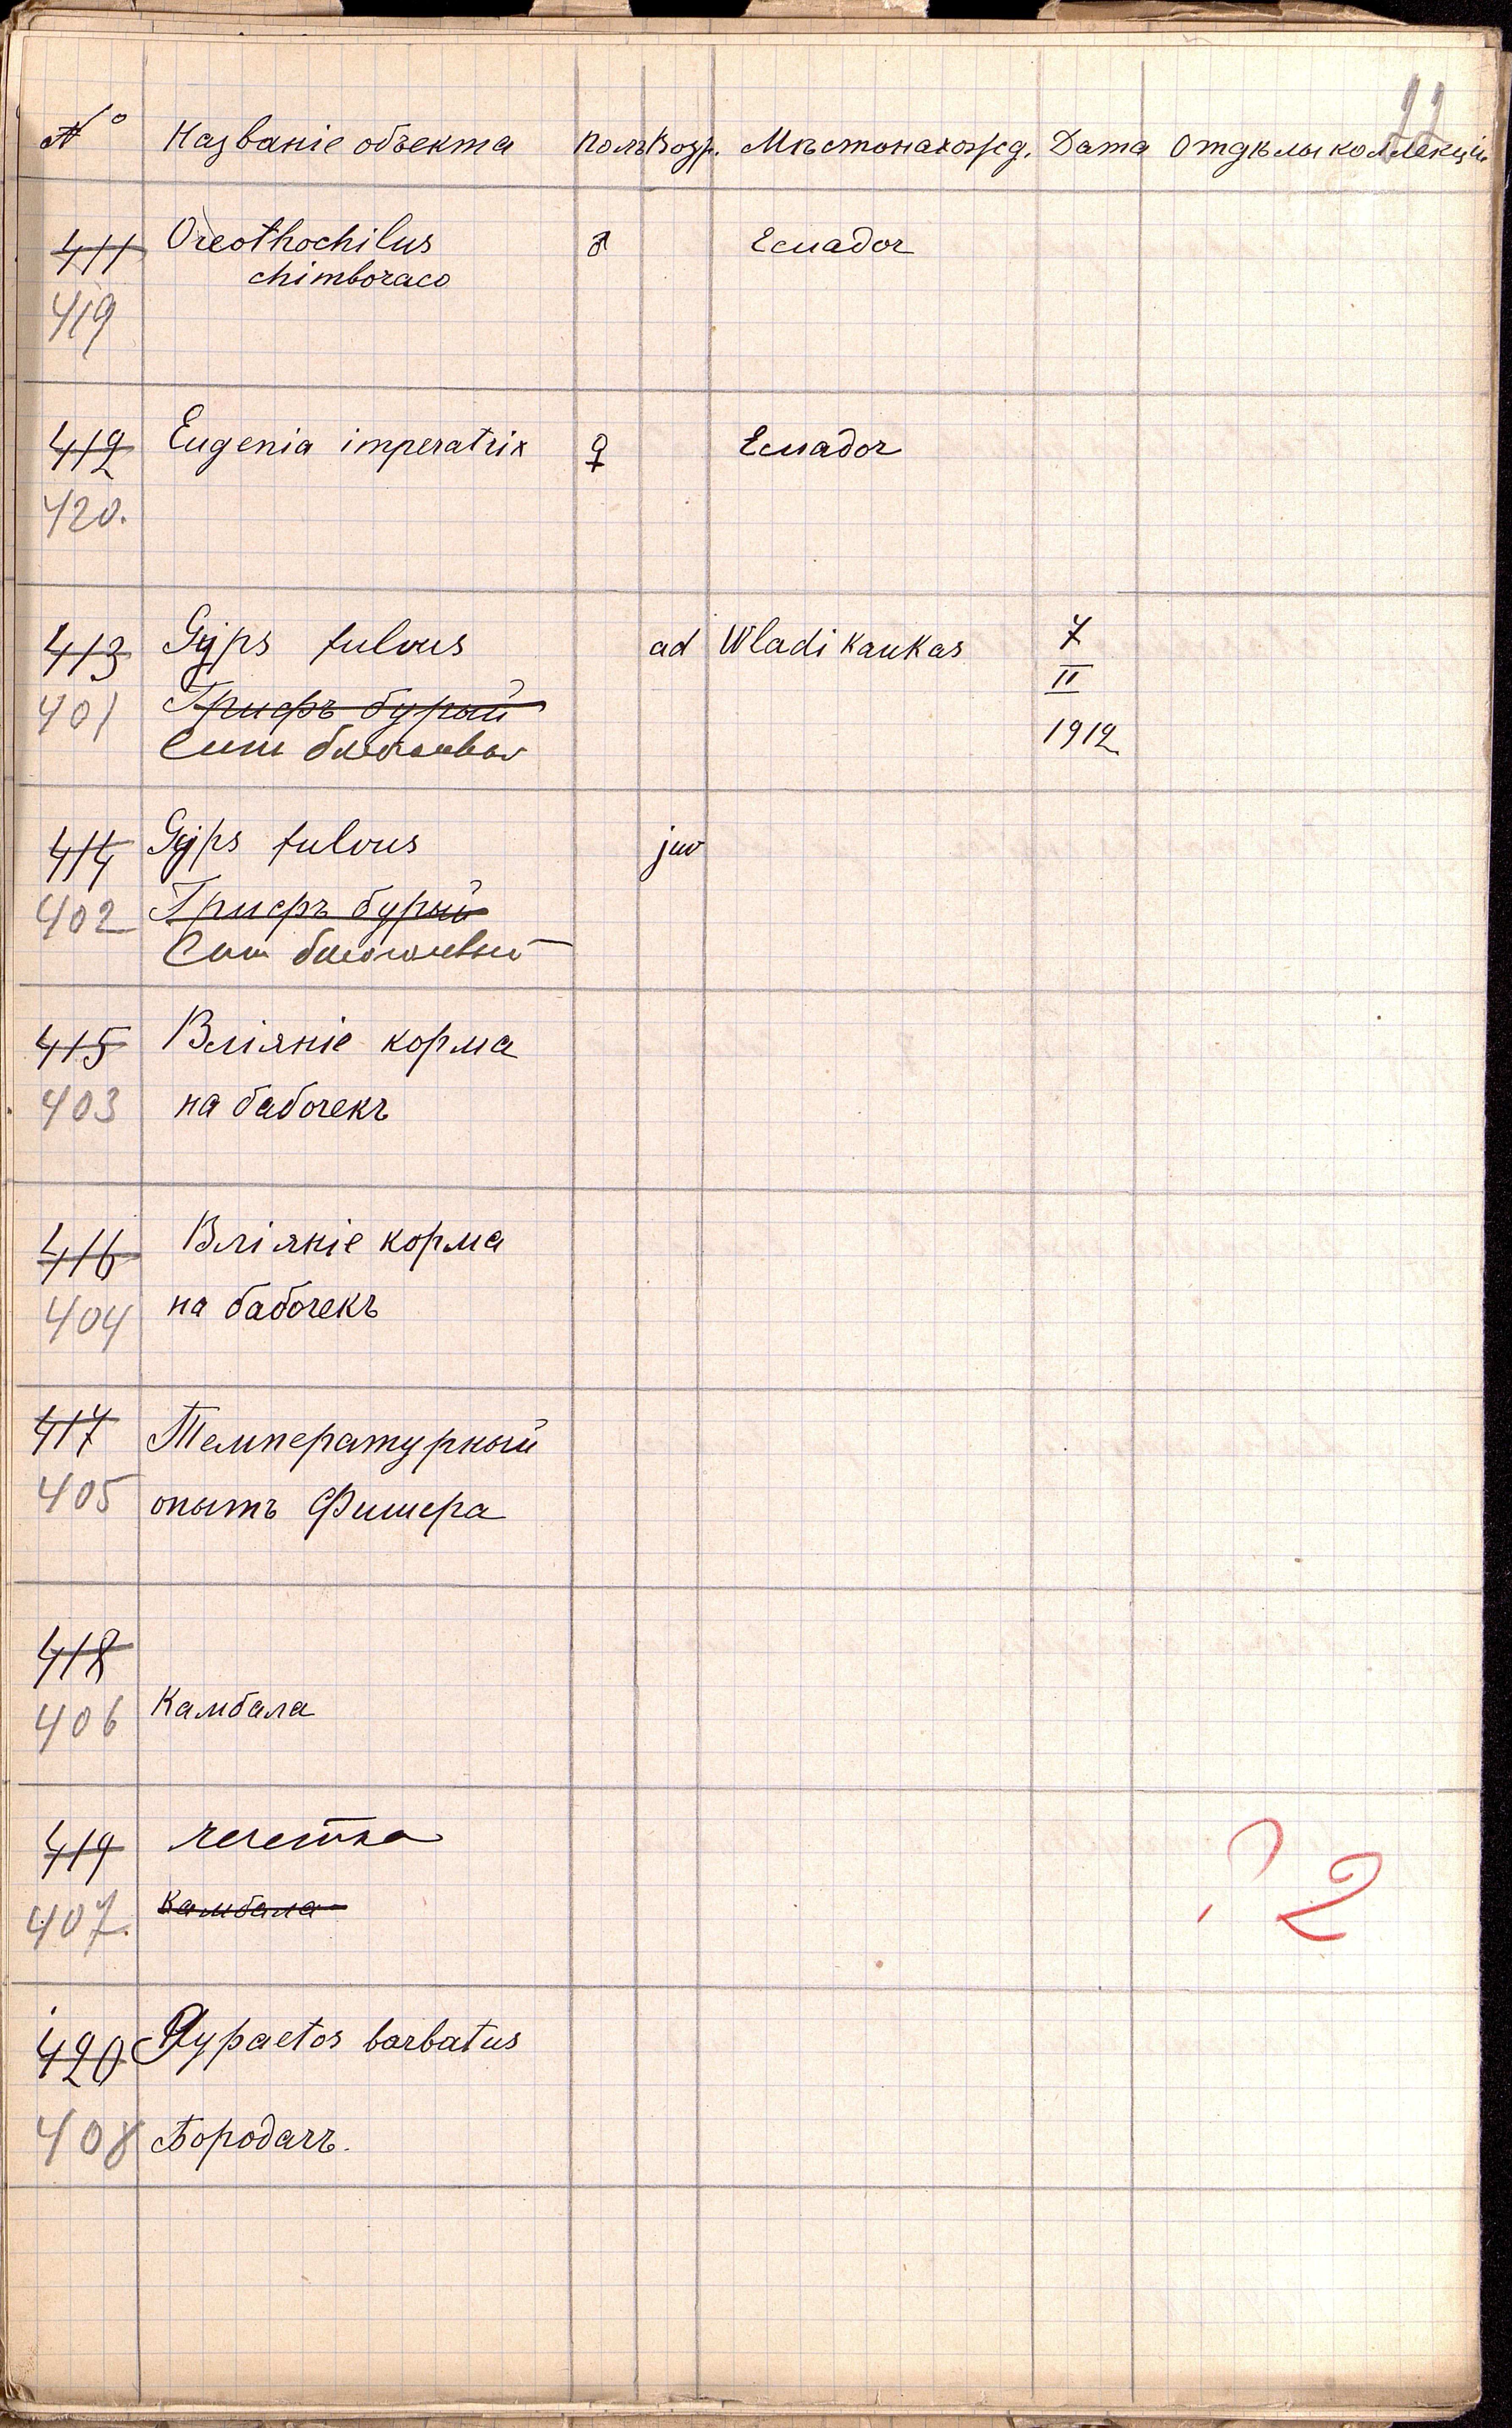 22
№ Названіе объекта Полъ Возр. Мѣстонахожд. Дата Отдѣлы коллекціи
411 Oreothochilus ♂ Ecuador
chimboraco
419
412 Eugenia imperatrix ♀ Ecuador
420.
413 Gyps fulvus ad Wladikaukas 7
II
401 Грифъ бурый
1912
Сип
414 Gyps fulvus juv
402 Грифъ бурый
Сип белоголовый
415 Вліяніе корма
403 на бабочекъ
416 Вліяніе корма
404 на бабочекъ
417 Температурный
405 опытъ Фишера
418
406 Камбала
419 чечетка
? 2
407. Камбала
420 Gypaetos barbatus
408 Бородачъ.